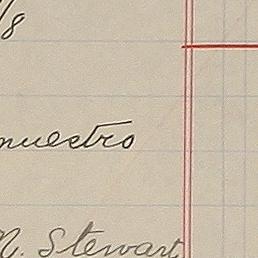 /8
nuestro
N. Stewart